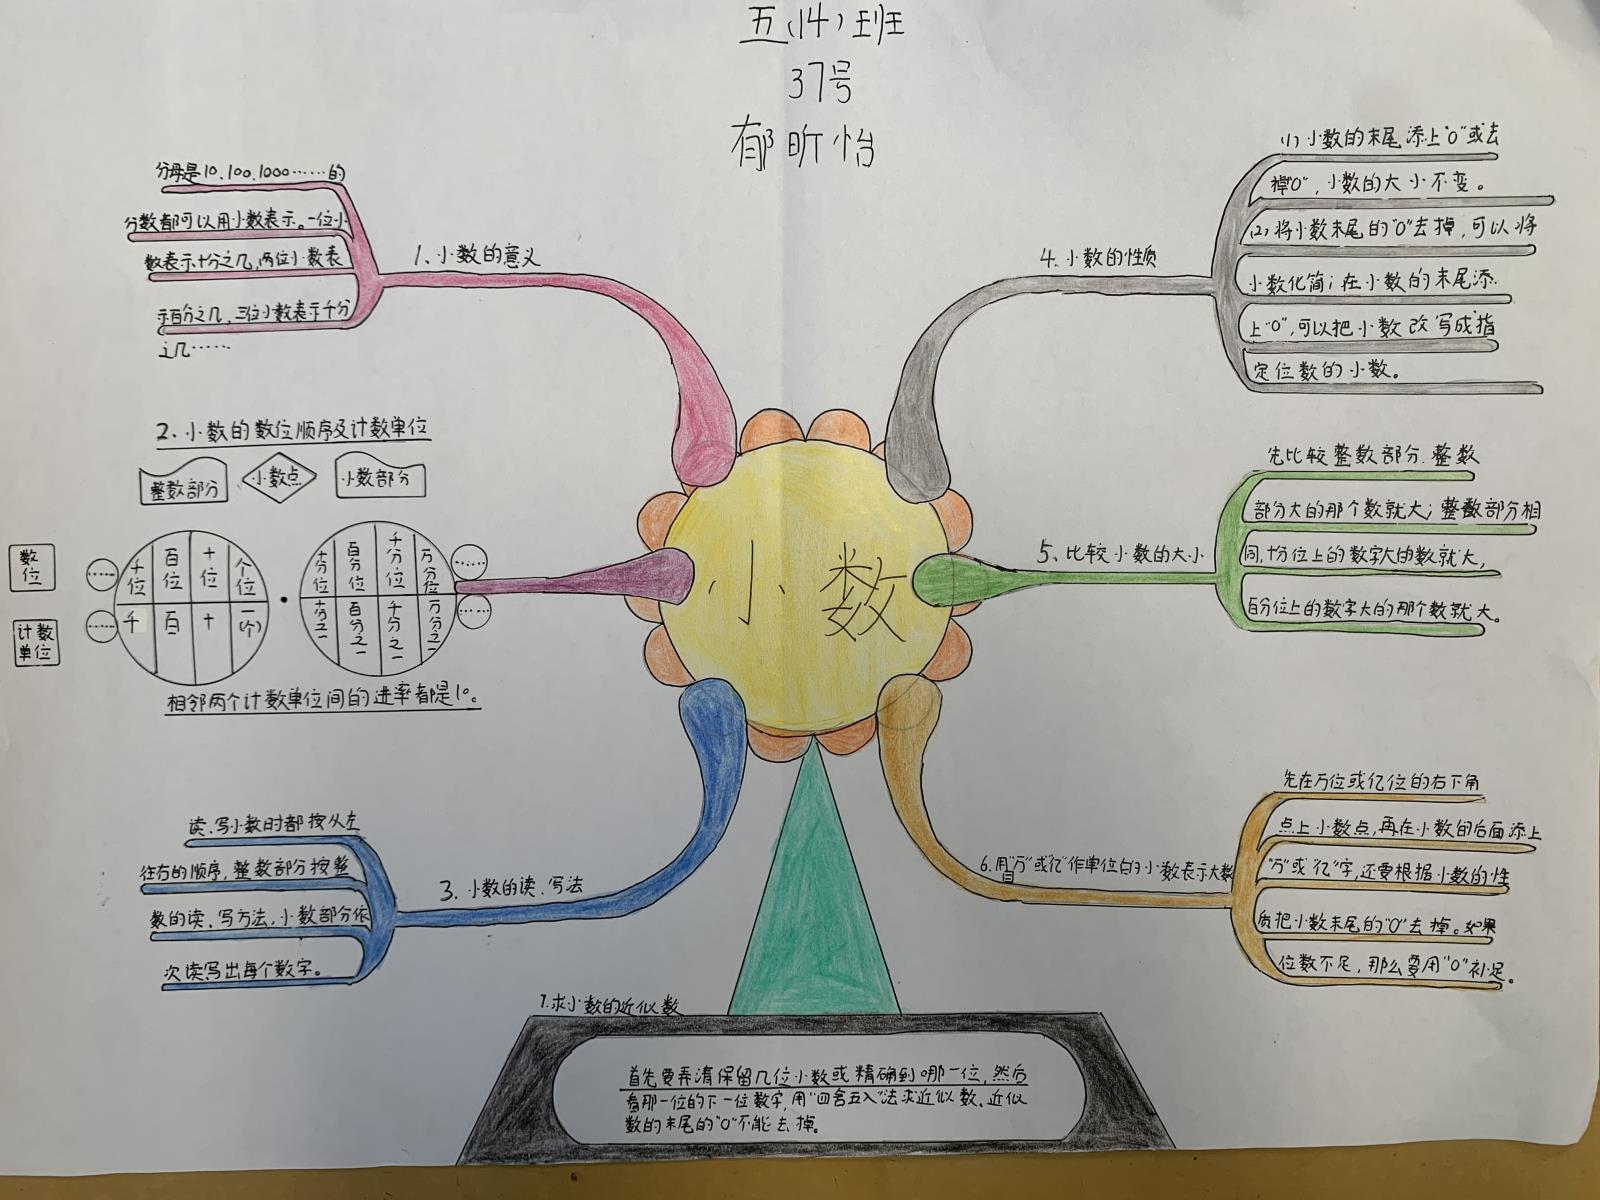 五(14)班
37号
郁昕怡
小数
1.小数的意义
分母是10、100、1000……的
分数都可以用小数表示。一位小
数表示十分之几,两位小数表
示百分之几,三位小数表示千分
之几……
2、小数的数位顺序及计数单位
整数部分 小数点 小数部分
数位 …… 千位 百位 十位 个位 · 十分位 百分位 千分位 万分位 ……
计数单位 …… 千 百 十 一(个) 十分之一 百分之一 千分之一 万分之一 ……
相邻两个计数单位间的进率都是10。
3、小数的读、写法
读、写小数时都按从左
往右的顺序,整数部分按整
数的读、写方法,小数部分依
次读写出每个数字。
4.小数的性质
(1)小数的末尾添上"0"或去
掉"0",小数的大小不变。
(2)将小数末尾的"0"去掉,可以将
小数化简;在小数的末尾添
上"0",可以把小数改写成指
定位数的小数。
5、比较小数的大小
先比较整数部分.整数
部分大的那个数就大;整数部分相
同,十分位上的数字大的数就大,
百分位上的数字大的那个数就大。
6.用"万"或"亿"作单位的小数表示大数目
先在万位或亿位的右下角
点上小数点,再在小数的后面添上
"万"或"亿"字,还要根据小数的性
质把小数末尾的"0"去掉。如果
位数不足,那么要用"0"补足。
7.求小数的近似数
首先要弄清保留几位小数或精确到哪一位,然后
看那一位的下一位数字,用"四舍五入"法求近似数。近似
数的末尾的"0"不能去掉。